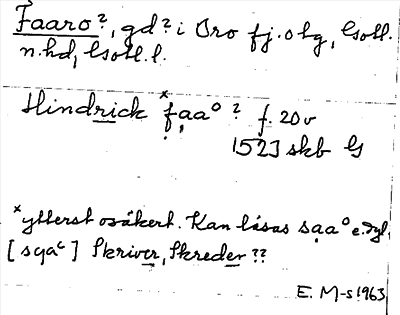 Faaro?, gd? i Oro fj. o hg, Gotl.
n. hd, Gotl. l.
Hindrick ˣfaaº ? f. 20v
1523 skb G
ˣytterst osäkert. Kan läsas saaº e. dyl.
[sya] Skriver, Skreder ??
E. M-s 1963